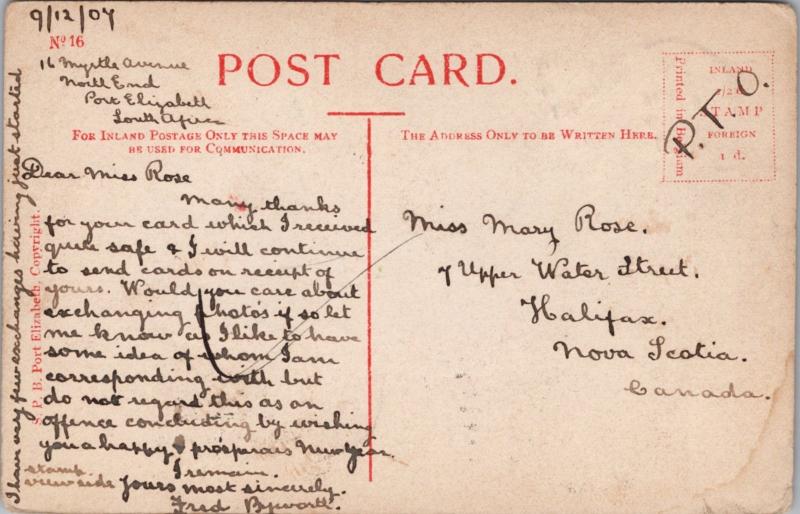 9/12/07
No 16
16 Myrtle Avenue
North End
Port Elizabeth
South Africa
POST CARD.
FOR INLAND POSTAGE ONLY THIS SPACE MAY
BE USED FOR COMMUNICATION.
THE ADDRESS ONLY TO BE WRITTEN HERE.
Printed in Belgium
INLAND
1/2 d.
STAMP
FOREIGN
1 d.
P.T.O.
Dear Miss Rose
Many thanks
for your card which I received
quite safe & I will continue
to send cards on receipt of
yours. Would you care about
exchanging photos if so let
me know as I like to have
some idea of whom I am
corresponding with but
do not regard this as an
offence concluding by wishing
you a happy & prosperous New Year
I remain.
Yours most sincerely.
Fred Byworth.
stamp
view side
I have very few exchanges having just started
S. P. B. Port Elizabeth. Copyright.
Miss Mary Rose.
7 Upper Water Street.
Halifax.
Nova Scotia.
Canada.